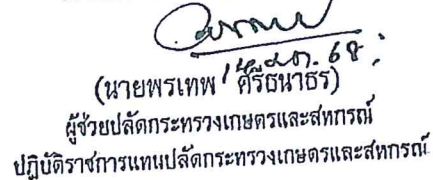 (นายพรเทพ ศรีธนาธร)
ผู้ช่วยปลัดกระทรวงเกษตรและสหกรณ์
ปฏิบัติราชการแทนปลัดกระทรวงเกษตรและสหกรณ์